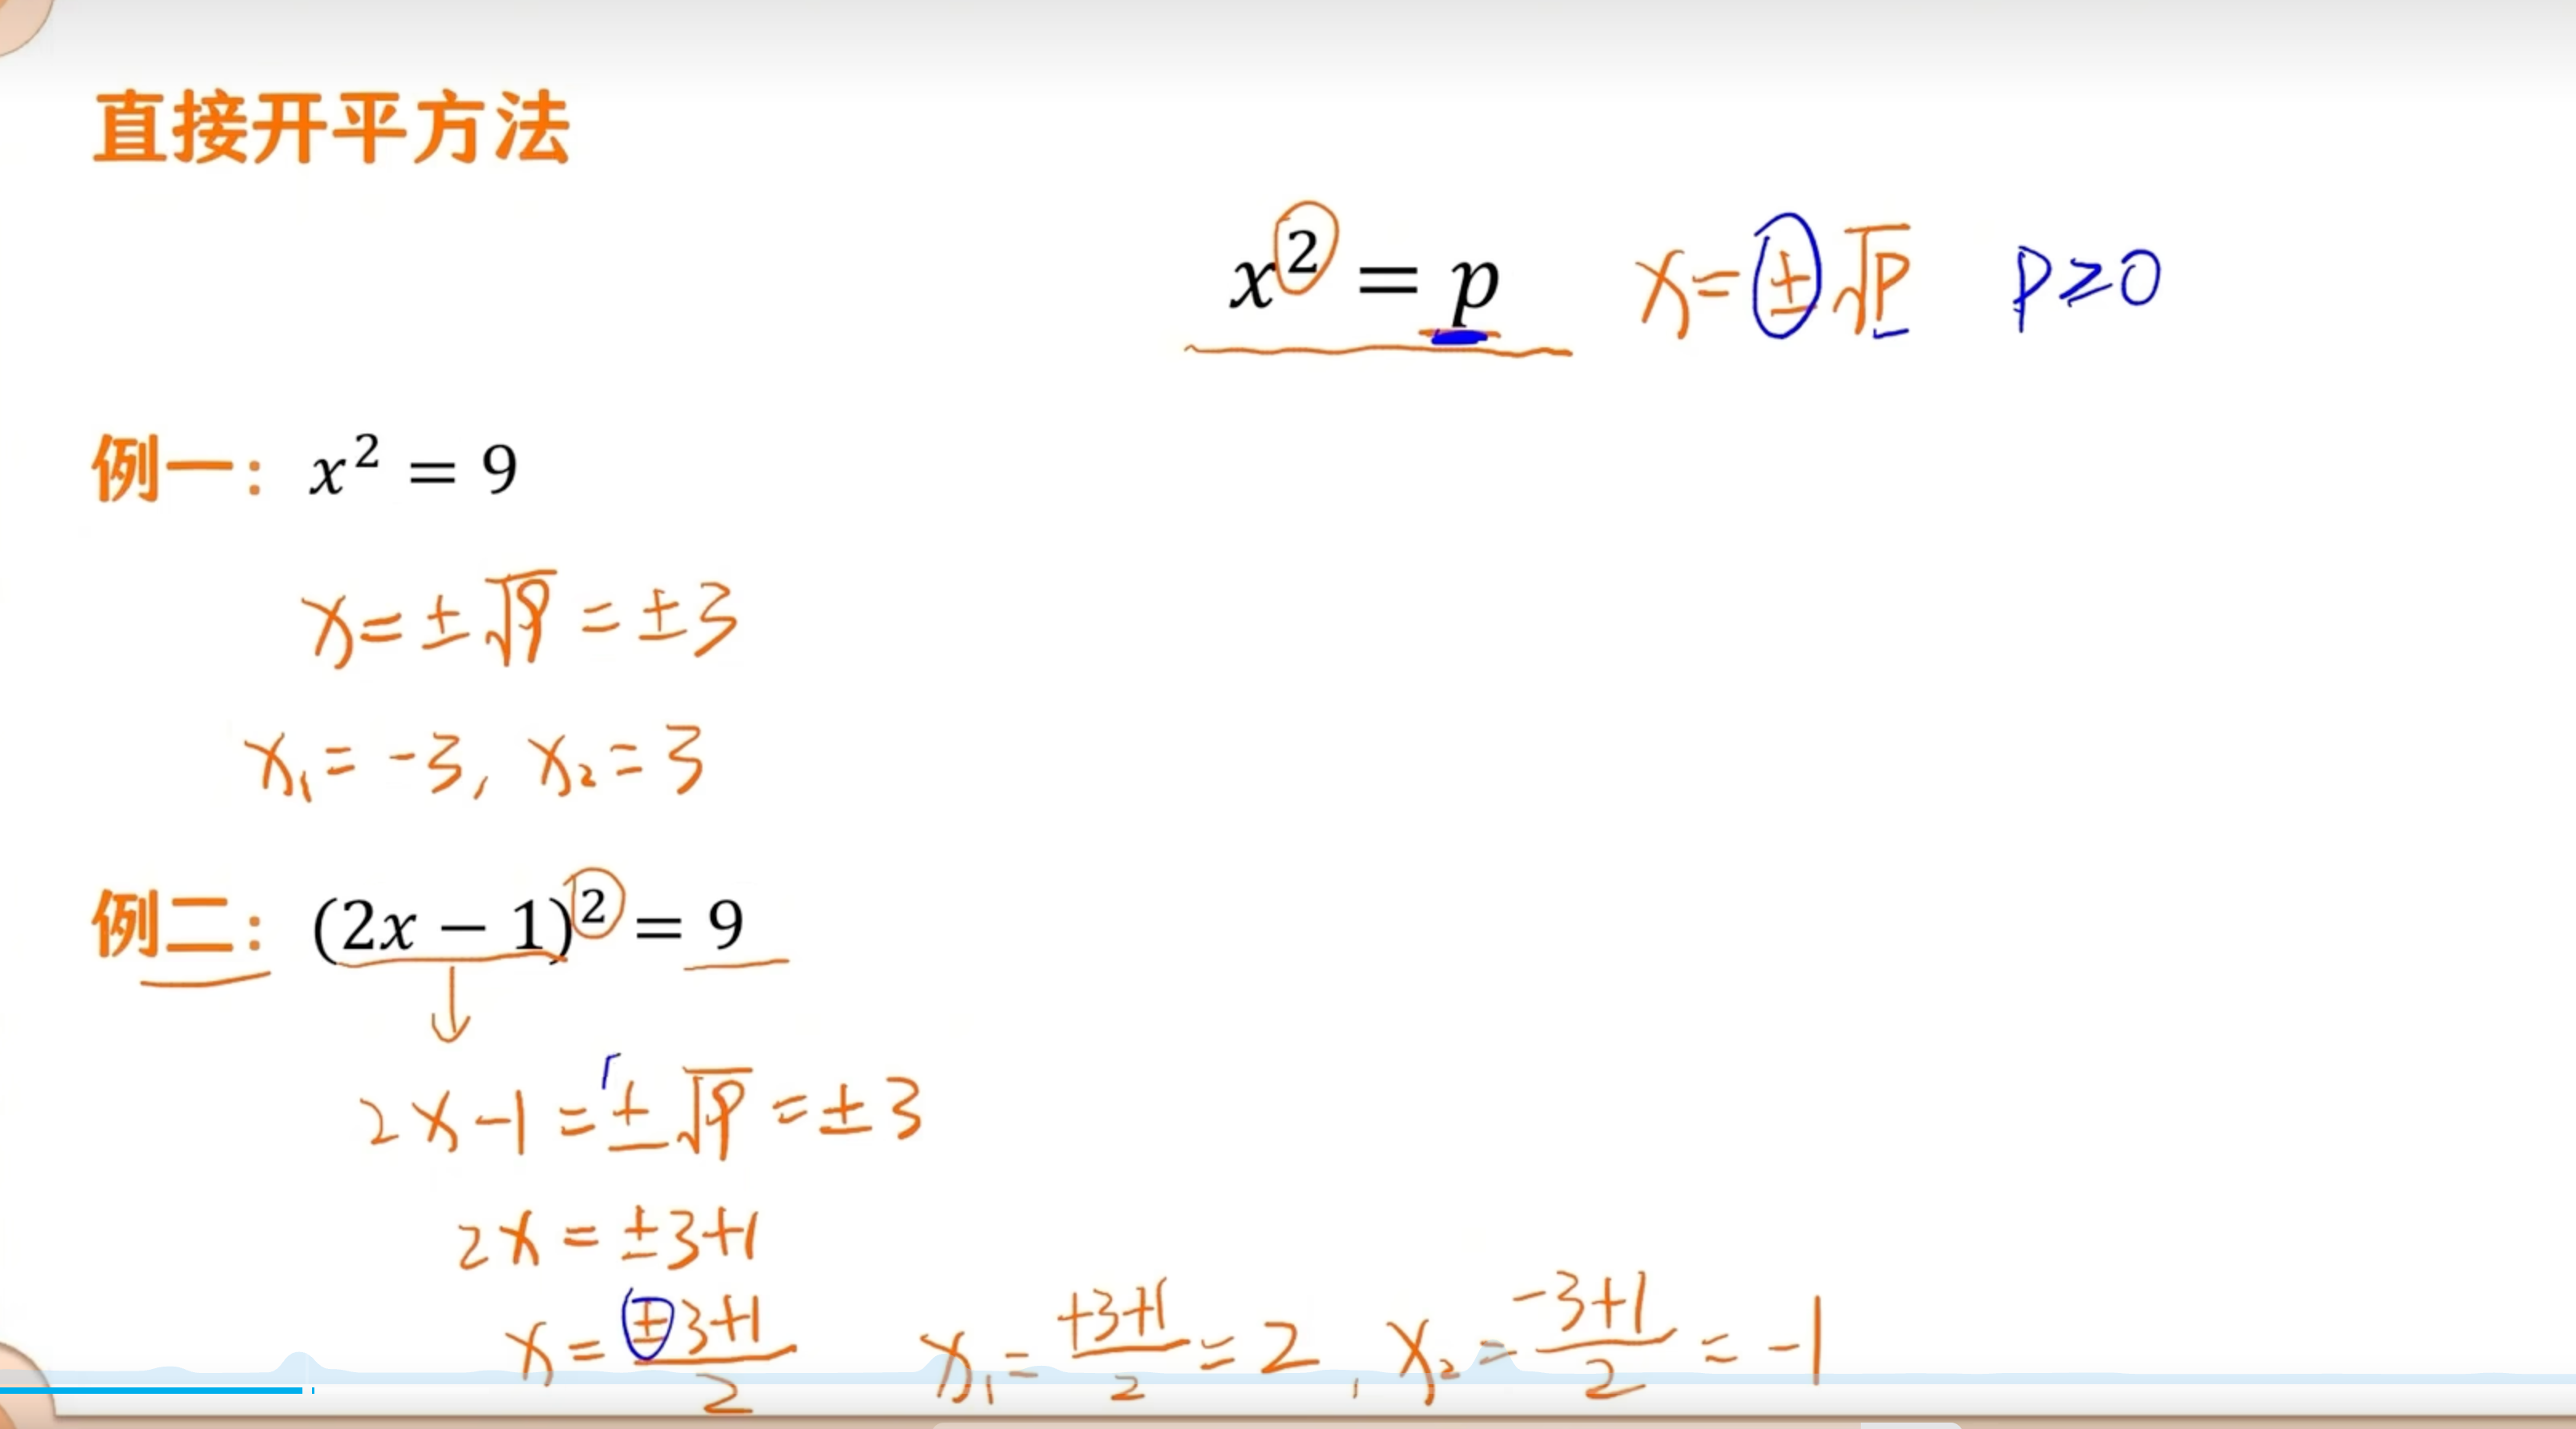 直接开平方法
x² = p x=±√p p≥0
例一：x² = 9
x=±√9=±3
x₁=-3, x₂=3
例二：(2x − 1)² = 9
2x-1=±√9=±3
2x=±3+1
x=(±3+1)/2 x₁=(+3+1)/2=2, x₂=(-3+1)/2=-1